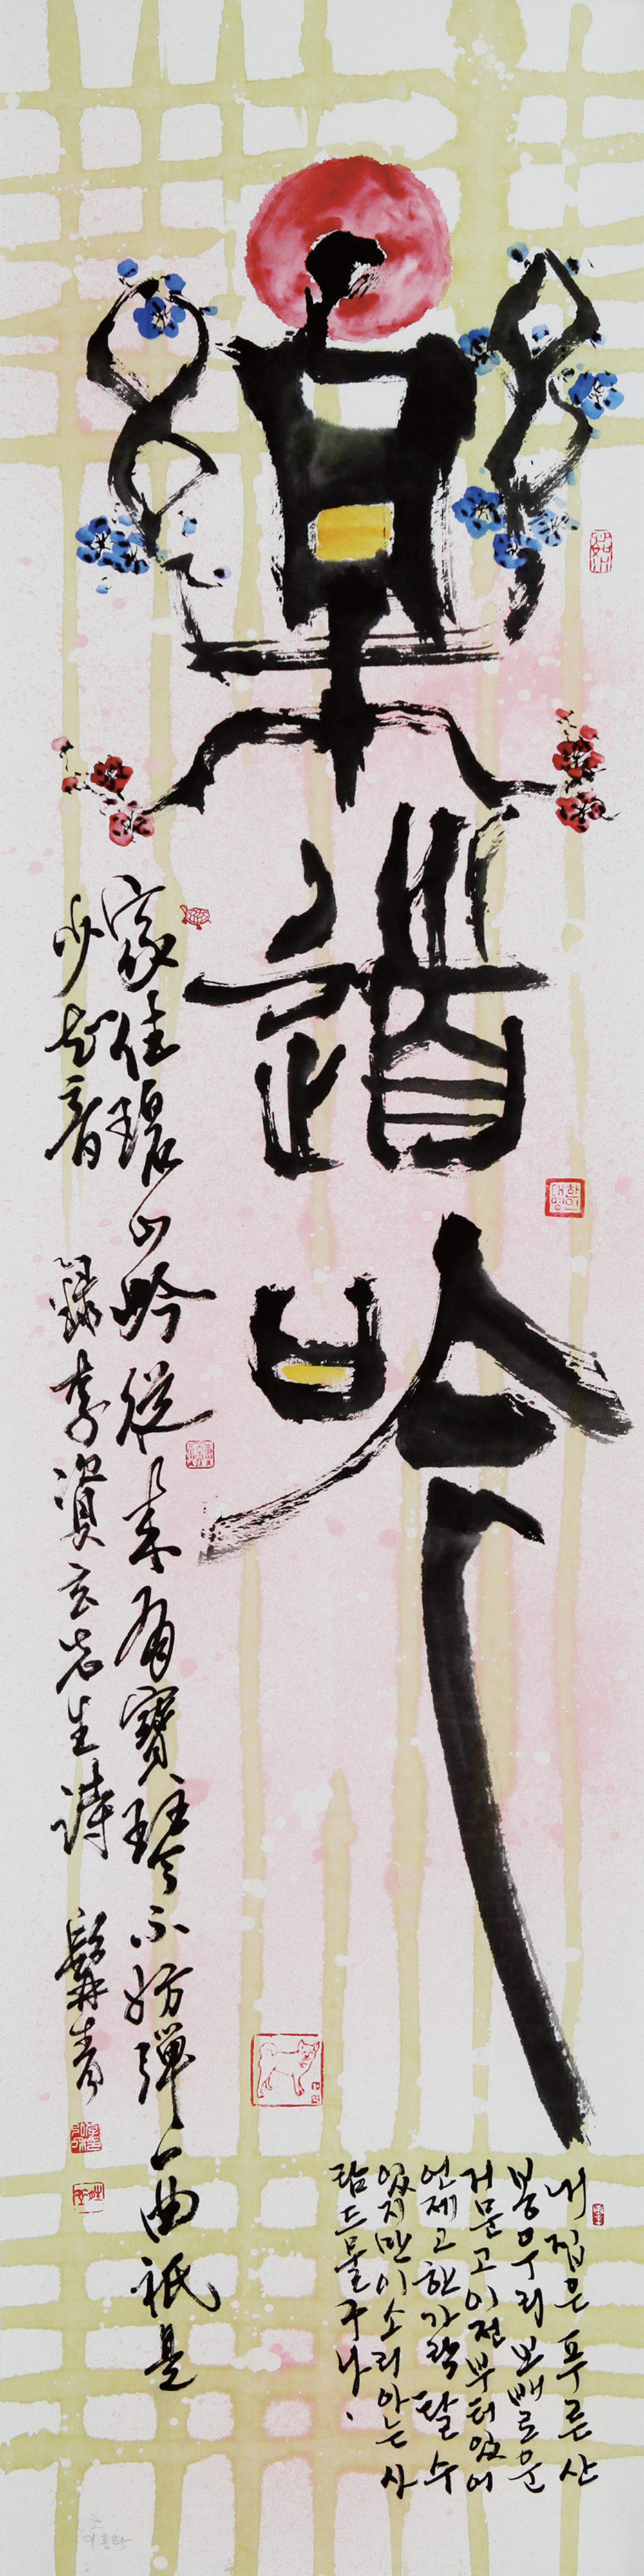 樂道吟
家住碧山岑從來有寶琴不妨彈一曲祇是
少知音 錄李資玄先生詩
내 집은 푸른 산
봉우리 보배로운
거문고 이전부터 있어
언제고 한 가락 탈 수
있지만 이 소리 아는 사
람 드물구나.